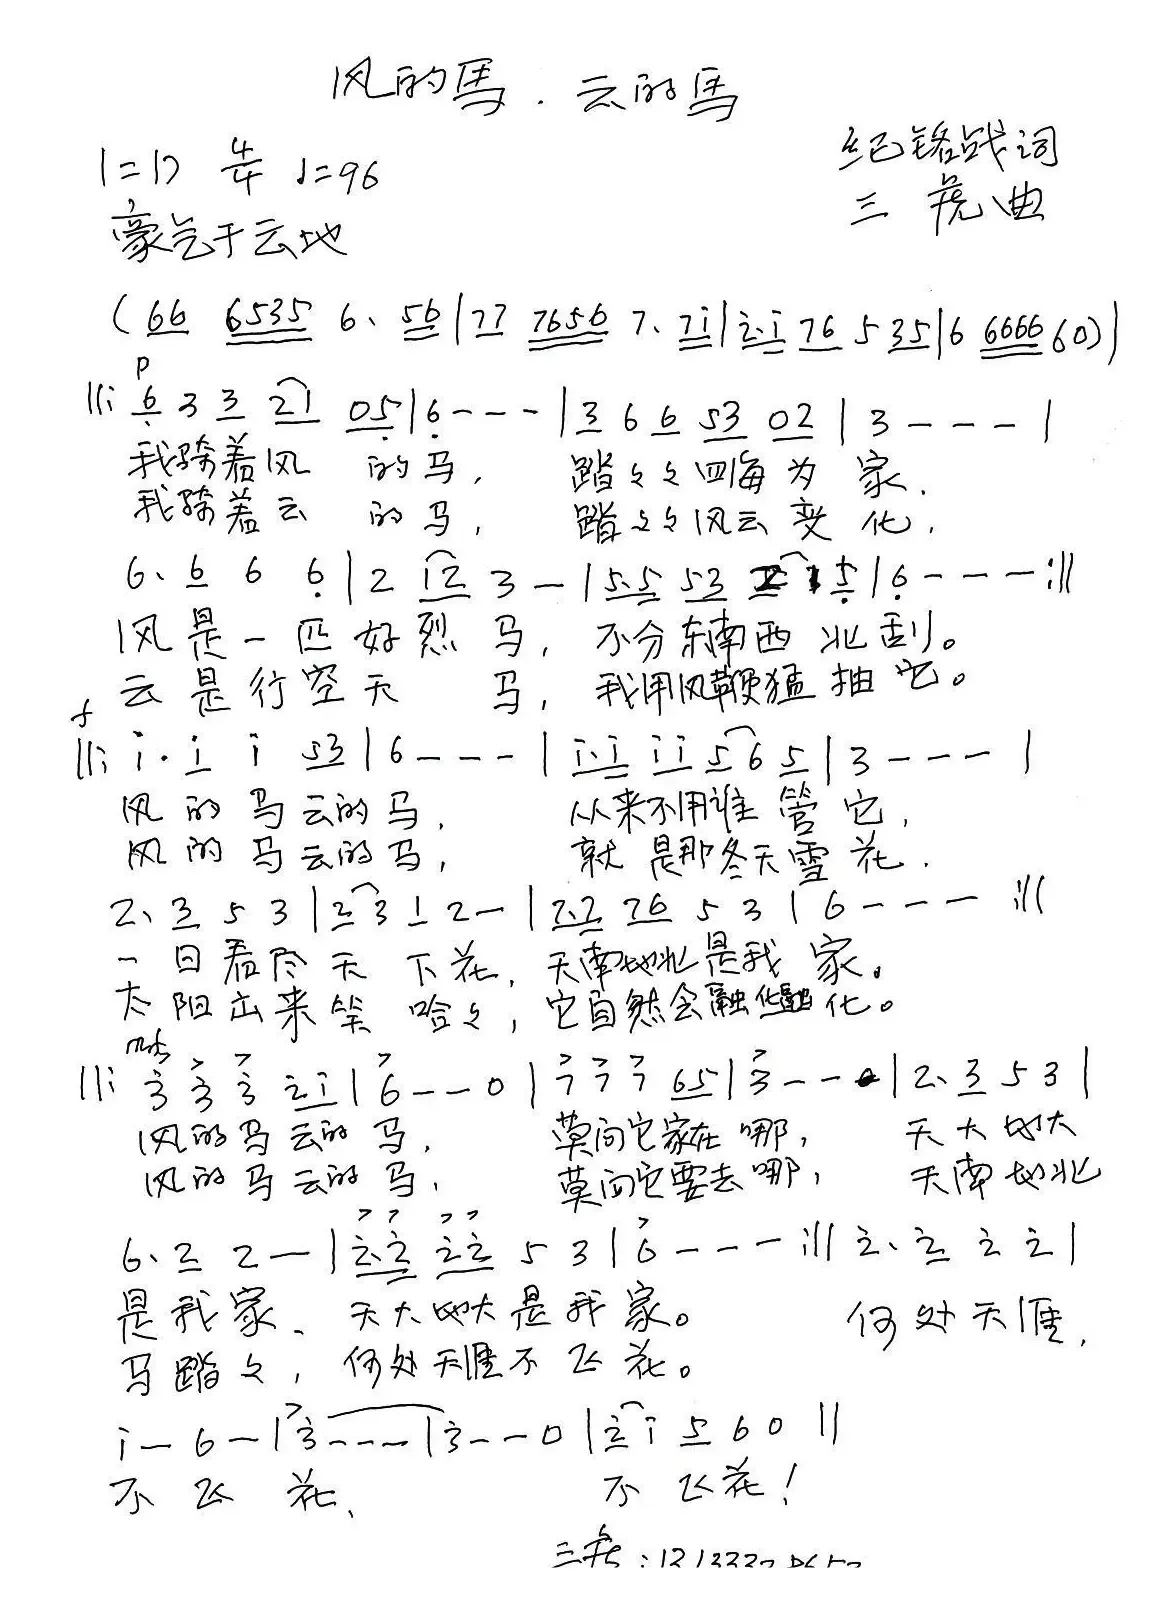 风的馬.云的馬
1=D 4/4 ♩=96
纪铭战词
豪气于云地
三虎曲
(66 6535 6. 56|77 7656 7. 7i|2.i 76 5 35|6 6666 60)|
p
||: 6 3 3 21 05|6---|3 6 6 53 02|3---|
我骑着风 的马, 踏々々四海为家.
我骑着云 的马, 踏々々风云变化,
6. 6 6 6|2 12 3-|5.5 53 2 1 5|6---:||
风是一匹好烈马, 不分东南西北刮。
云是行空天 马, 我用风鞭猛抽它。
f
||: i. i i 53|6---|i.i ii 5 6 5|3---|
风的马云的马, 从来不用谁管它,
风的马云的马, 就是那冬天雪花.
2. 3 5 3|2 3 1 2-|2.2 76 5 3|6---:||
一日看尽天下花, 天南地北是我家。
太阳出来笑哈々, 它自然会融化融化。
||: 3 3 3 2i|6--0|7 7 7 65|3--0|2. 3 5 3|
风的马云的马, 莫问它家在哪, 天大地大
风的马云的马, 莫问它要去哪, 天南地北
6. 2 2-|2.2 22 5 3|6---:|| 2. 2 2 2|
是我家、天大地大是我家。 何处天涯,
马踏々, 何处天涯不飞花。
i-6-|3---|3--0|2 i 5 6 0||
不飞花、 不飞花!
三虎: